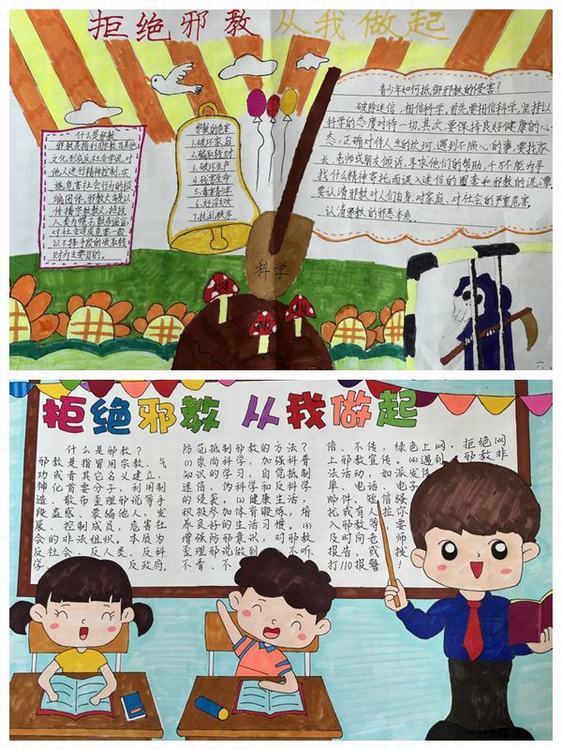 拒绝邪教 从我做起
什么是邪教
邪教是指利用宗教及其他
邪教的危害
1.破坏家庭
2.骗取钱财
3.破坏生产
4.残害生命
7.扰乱秩序
青少年如何抵御邪教的侵害?
破除迷信,相信科学。首先要相信科学,坚持以
科学的态度对待一切。其次,要保持良好健康的心
态,正确对待人生的坎坷,遇到不顺心的事,要找家
长、老师或朋友倾诉,寻求他们的帮助,千万不能为寻
找什么精神寄托而误入迷信的圈套和邪教的泥潭。
要认清邪教对人们自身、对家庭、对社会的严重危害,
认清邪教的邪恶本质。
科学
拒绝邪教 从我做起
什么是邪教?
邪教是指冒用宗教、气
功或者其它名义建立,
神化首要分子,利用制
造、散布歪理邪说等手
段蛊惑、蒙骗他人,发
展、控制成员,危害社
会的非法组织。本质为
反社会、反人类、反科
学、反政府。
防范抵制邪教的方法?
(1)崇尚科学,加强科普
知识的学习,自觉抵制
迷信、伪科学和反科学
的侵袭。(2)健康生活,
积极参加体育锻炼,培
养良好的生活习惯。(3)
增强防邪意识,对邪教
歪理邪说做到不听、
不看、不
信、不传,绿色上网,拒绝网
上邪教宣传。(4)遇到邪教非
法活动,如派发传
单、电话、电子
邮件、短信骚
扰或有人拉你
入邪教等,要
及时向老师
报告,或拨
打110报警!